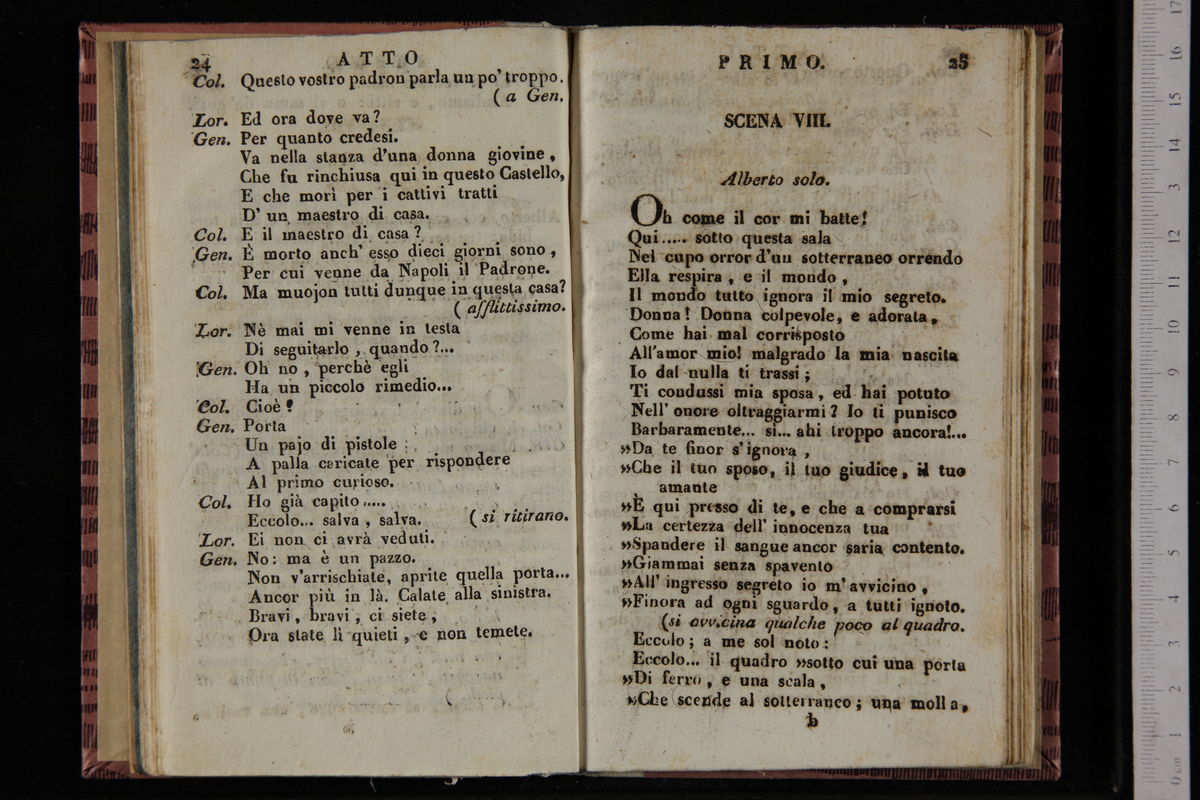 24 ATTO
Col. Questo vostro padron parla un po' troppo.
( a Gen.
Lor. Ed ora dove va?
Gen. Per quanto credesi.
Va nella stanza d'una donna giovine,
Che fu rinchiusa qui in questo Castello,
E che morì per i cattivi tratti
D' un maestro di casa.
Col. E il maestro di casa?
Gen. È morto anch' esso dieci giorni sono,
Per cui venne da Napoli il Padrone.
Col. Ma muojon tutti dunque in questa casa?
( afflittissimo.
Lor. Nè mai mi venne in testa
Di seguitarlo, quando?...
Gen. Oh no, perchè egli
Ha un piccolo rimedio...
Col. Cioè?
Gen. Porta
Un pajo di pistole :
A palla caricate per rispondere
Al primo curioso.
Col. Ho già capito.....
Eccolo... salva, salva. ( si ritirano.
Lor. Ei non ci avrà veduti.
Gen. No: ma è un pazzo.
Non v'arrischiate, aprite quella porta...
Ancor più in là. Calate alla sinistra.
Bravi, bravi, ci siete,
Ora state lì quieti, e non temete.
PRIMO. 25
SCENA VIII.
Alberto solo.
Oh come il cor mi batte!
Qui..... sotto questa sala
Nel cupo orror d'un sotterraneo orrendo
Ella respira, e il mondo,
Il mondo tutto ignora il mio segreto.
Donna! Donna colpevole, e adorata,
Come hai mal corrisposto
All'amor mio! malgrado la mia nascita
Io dal nulla ti trassi;
Ti condussi mia sposa, ed hai potuto
Nell' onore oltraggiarmi? Io ti punisco
Barbaramente... sì... ahi troppo ancora!...
»Da te finor s'ignora,
»Che il tuo sposo, il tuo giudice, il tuo
amante
»È qui presso di te, e che a comprarsi
»La certezza dell' innocenza tua
»Spandere il sangue ancor saria contento.
»Giammai senza spavento
»All' ingresso segreto io m'avvicino,
»Finora ad ogni sguardo, a tutti ignoto.
(si avvicina qualche poco al quadro.
Eccolo; a me sol noto:
Eccolo... il quadro »sotto cui una porta
»Di ferro, e una scala,
»Che scende al sotterraneo; una molla,
b
17
16
15
14
13
12
11
10
9
8
7
6
5
4
3
2
1
0 cm